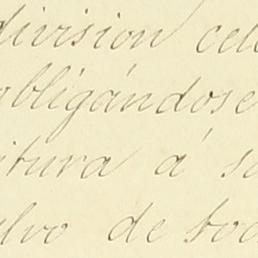 division cel
obligándose
itura á s
alvo de tod